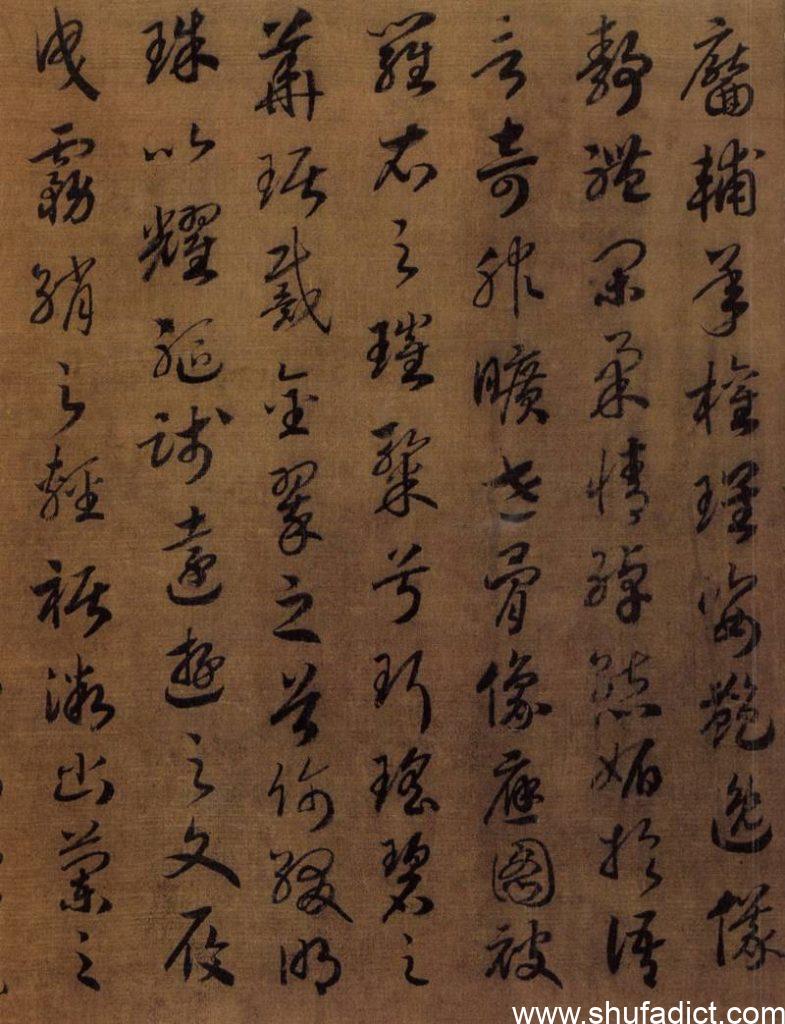 靨輔承權瓌姿艷逸儀
靜體閑柔情綽態媚於語
言奇服曠世骨像應圖被
羅衣之璀粲兮珥瑤碧之
華琚戴金翠之首飾綴明
珠以耀軀踐遠遊之文履
曳霧綃之輕裾微幽蘭之
www.shufadict.com